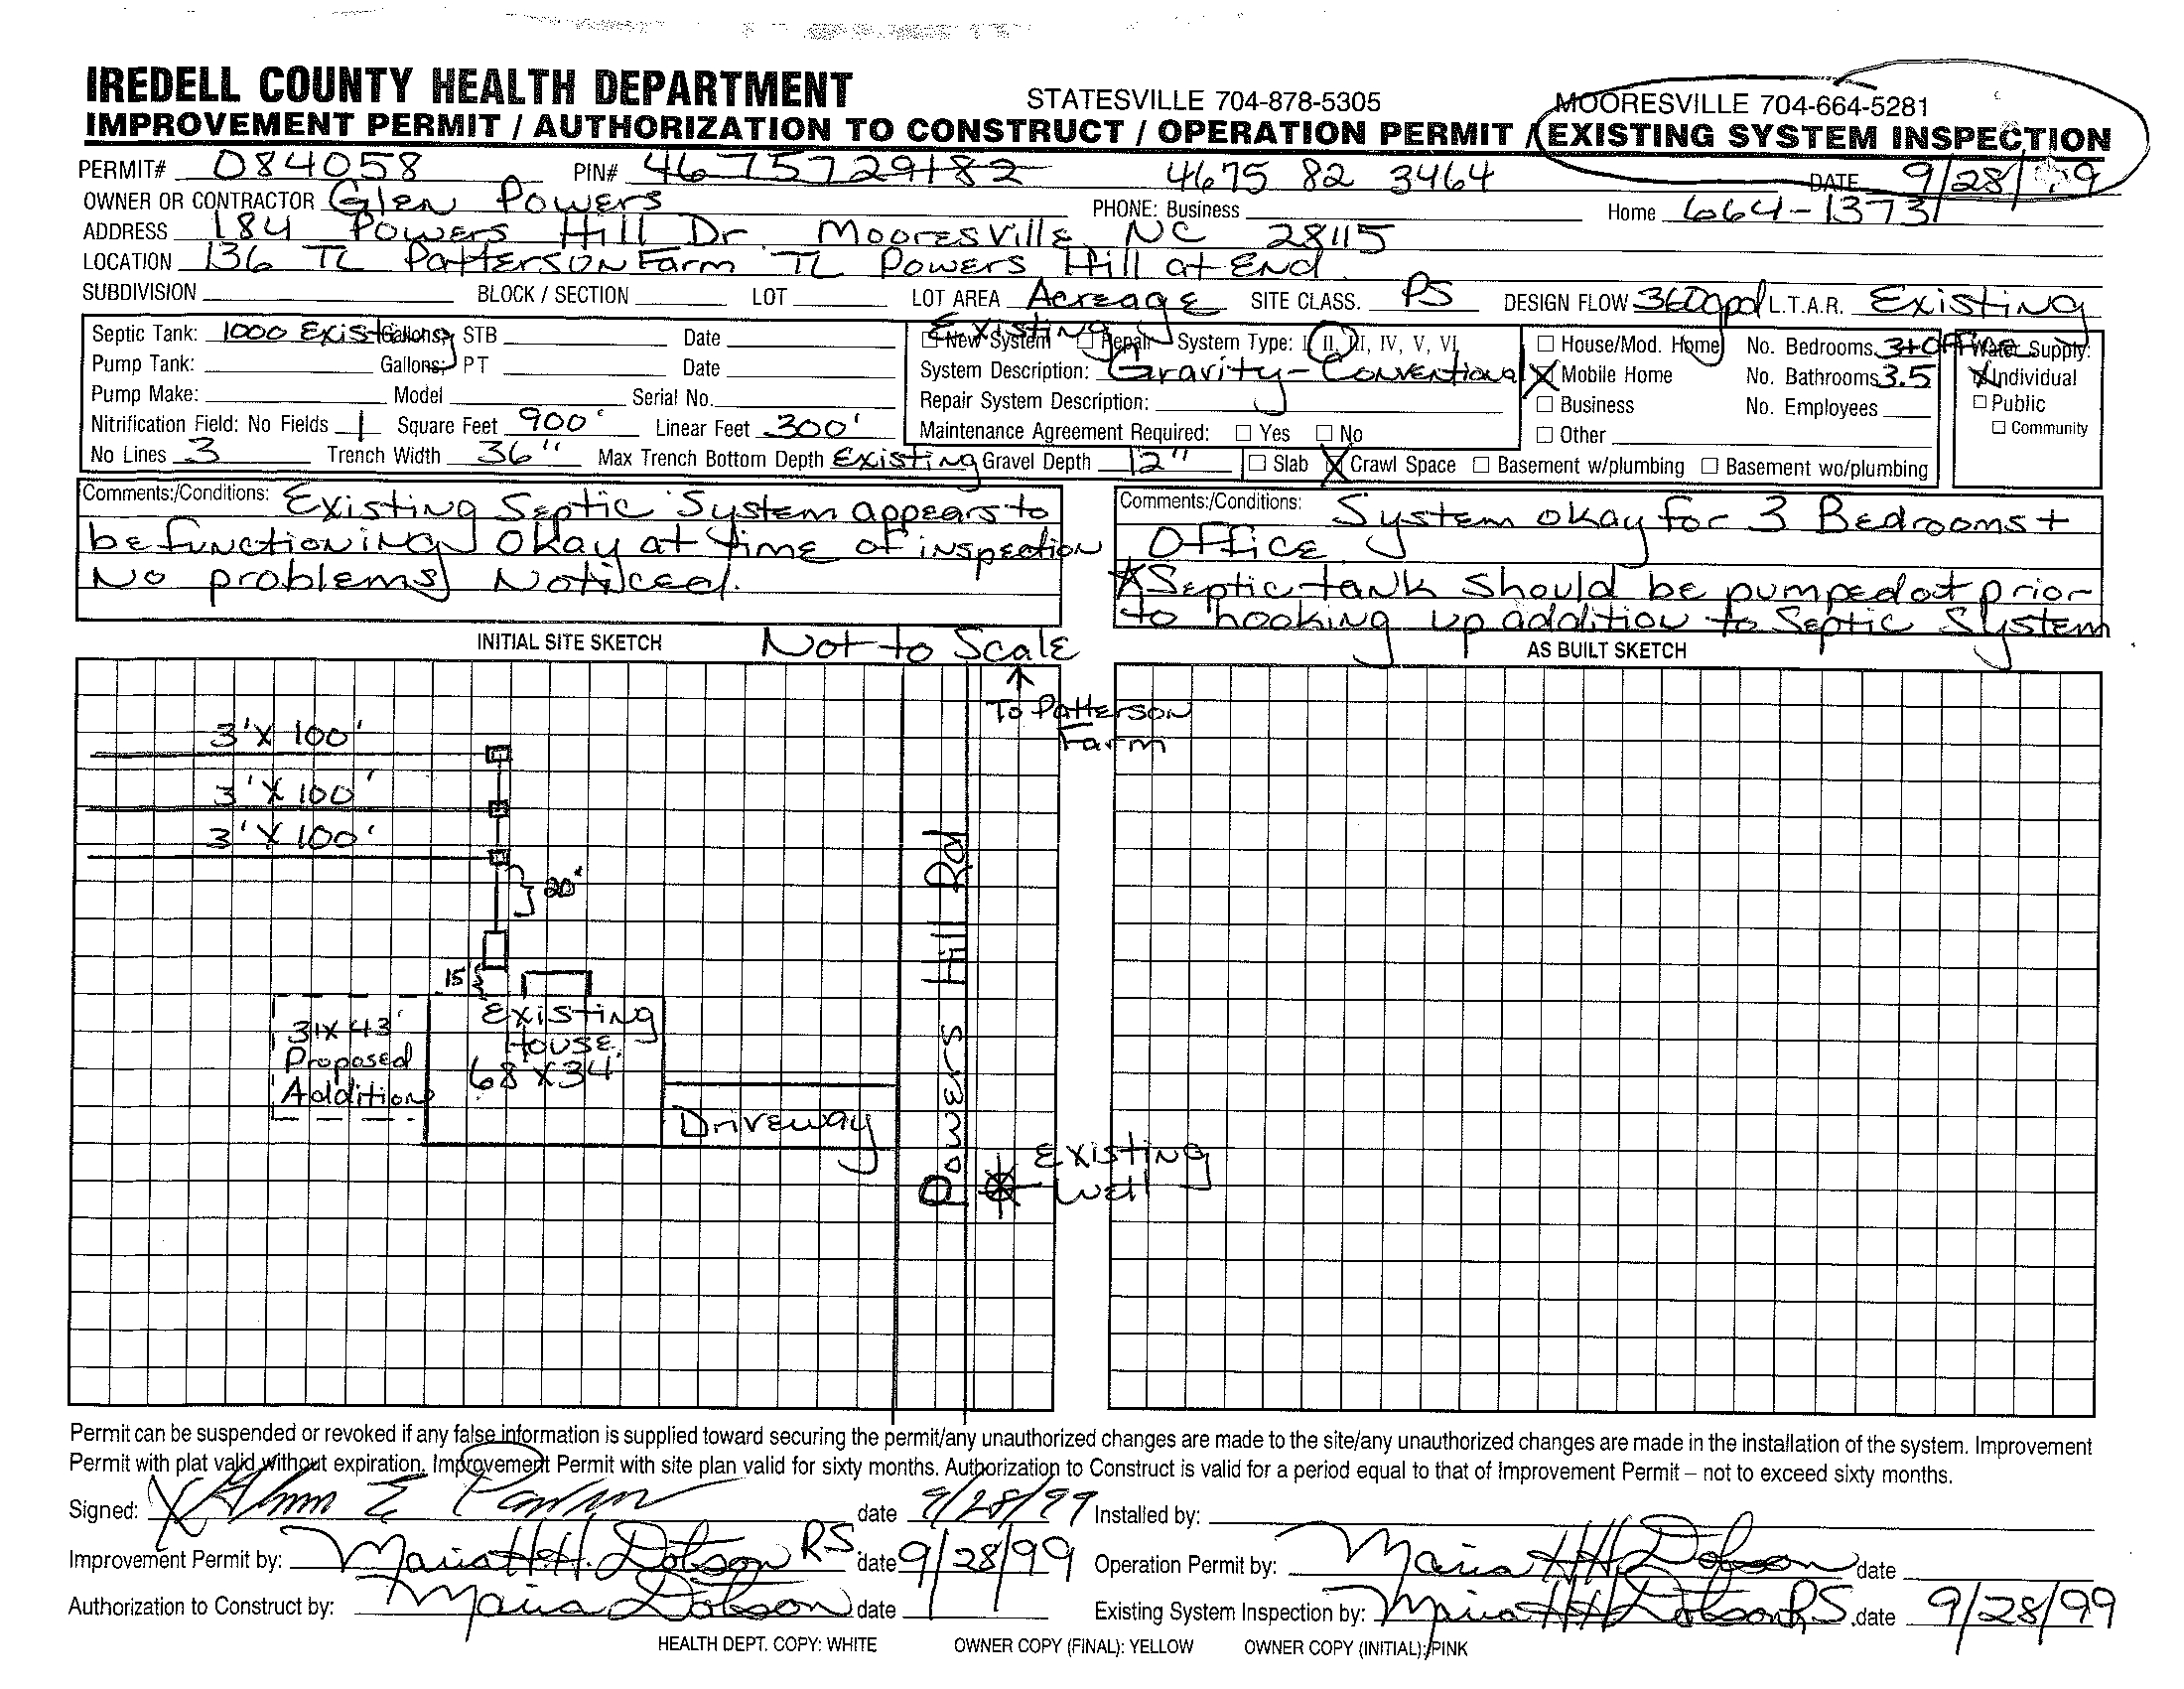 IREDELL COUNTY HEALTH DEPARTMENT STATESVILLE 704-878-5305 MOORESVILLE 704-664-5281
IMPROVEMENT PERMIT / AUTHORIZATION TO CONSTRUCT / OPERATION PERMIT / EXISTING SYSTEM INSPECTION
PERMIT# 084058 PIN# 4675729182 4675 82 3464 DATE 9/28/99
OWNER OR CONTRACTOR Glen Powers PHONE: Business Home 664-1373
ADDRESS 184 Powers Hill Dr. Mooresville NC 28115
LOCATION 136 TL Patterson Farm TL Powers Hill at End
SUBDIVISION BLOCK / SECTION LOT LOT AREA Acreage SITE CLASS. PS DESIGN FLOW 360gpd L.T.A.R. Existing
Septic Tank: 1000 Existing Gallons; STB Date
Pump Tank: Gallons; PT Date
Pump Make: Model Serial No.
Nitrification Field: No Fields 1 Square Feet 900' Linear Feet 300'
No Lines 3 Trench Width 36" Max Trench Bottom Depth Existing Gravel Depth 12"
Existing
New System Repair System Type: I, II, III, IV, V, VI
System Description: Gravity-Conventional
Repair System Description:
Maintenance Agreement Required: Yes No
Slab X Crawl Space Basement w/plumbing Basement wo/plumbing
House/Mod. Home No. Bedrooms 3+Office
X Mobile Home No. Bathrooms 3.5
Business No. Employees
Other
Water Supply:
X Individual
Public
Community
Comments:/Conditions: Existing Septic System appears to
be functioning okay at time of inspection
No problems Noticed.
Comments:/Conditions: System okay for 3 Bedrooms +
Office
*Septic tank should be pumped out prior
to hooking up addition to Septic System
INITIAL SITE SKETCH Not to Scale
AS BUILT SKETCH
To Patterson
Farm
3' X 100'
3' X 100'
3' X 100'
20'
15'
31 X 43'
Proposed
Addition
Existing
House
68 X 34'
Driveway
Powers Hill Rd
Existing
Well
Permit can be suspended or revoked if any false information is supplied toward securing the permit/any unauthorized changes are made to the site/any unauthorized changes are made in the installation of the system. Improvement
Permit with plat valid without expiration. Improvement Permit with site plan valid for sixty months. Authorization to Construct is valid for a period equal to that of Improvement Permit – not to exceed sixty months.
Signed: X Glenn E Powers date 9/28/99 Installed by:
Improvement Permit by: Maria H.H. Dobson RS date 9/28/99 Operation Permit by: Maria H H Dobson date
Authorization to Construct by: Maria Dobson date Existing System Inspection by: Maria H H Dobson RS. date 9/28/99
HEALTH DEPT. COPY: WHITE OWNER COPY (FINAL): YELLOW OWNER COPY (INITIAL): PINK